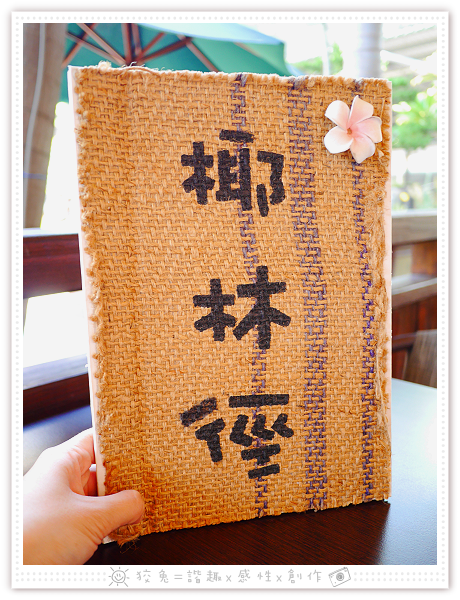 椰林徑
狡兔=諧趣x感性x創作